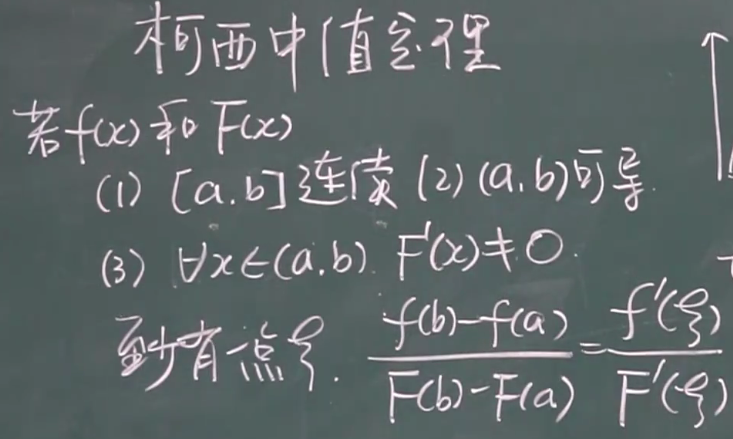 柯西中值定理
若f(x)和F(x)
(1) [a.b]连续 (2) (a.b)可导.
(3) ∀x∈(a.b). F'(x)≠0.
至少有一点ξ. (f(b)-f(a))/(F(b)-F(a)) = f'(ξ)/F'(ξ)